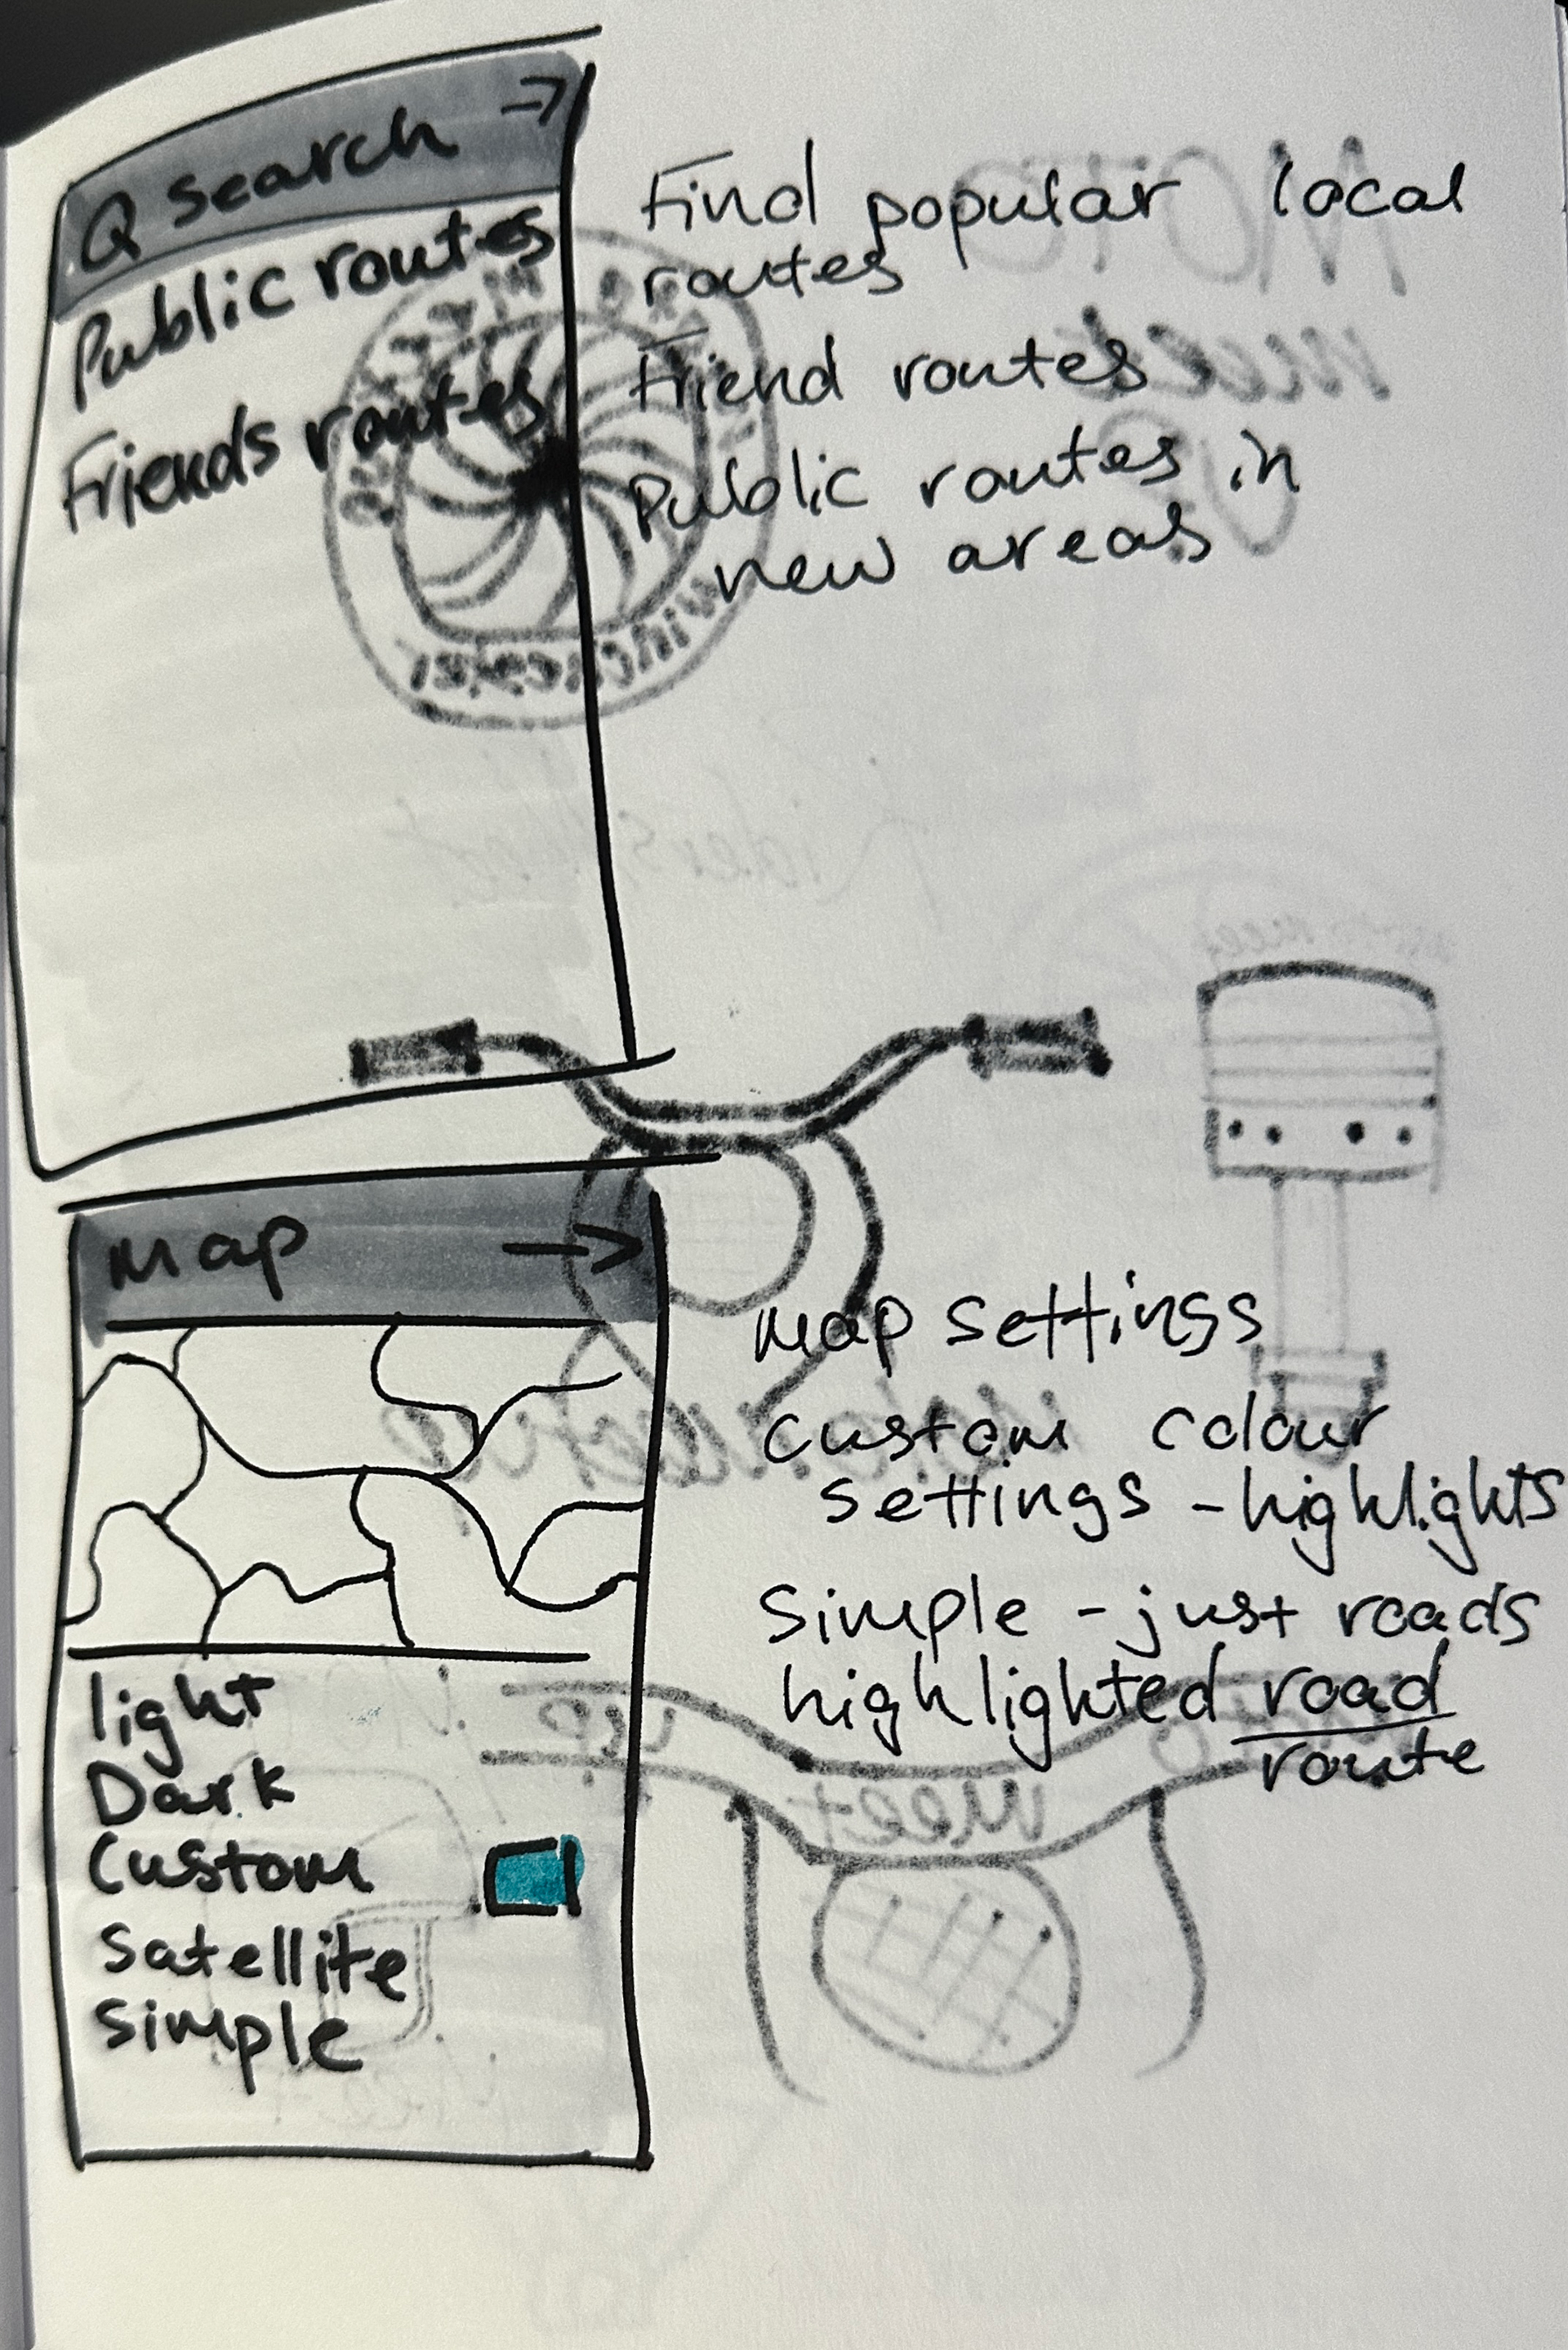 Q Search →
Public routes
Friends routes
Find popular local
routes
Friend routes
Public routes in
new areas
Map →
light
Dark
Custom
Satellite
Simple
Map settings
Custom colour
settings - highlights
Simple - just roads
highlighted road
route